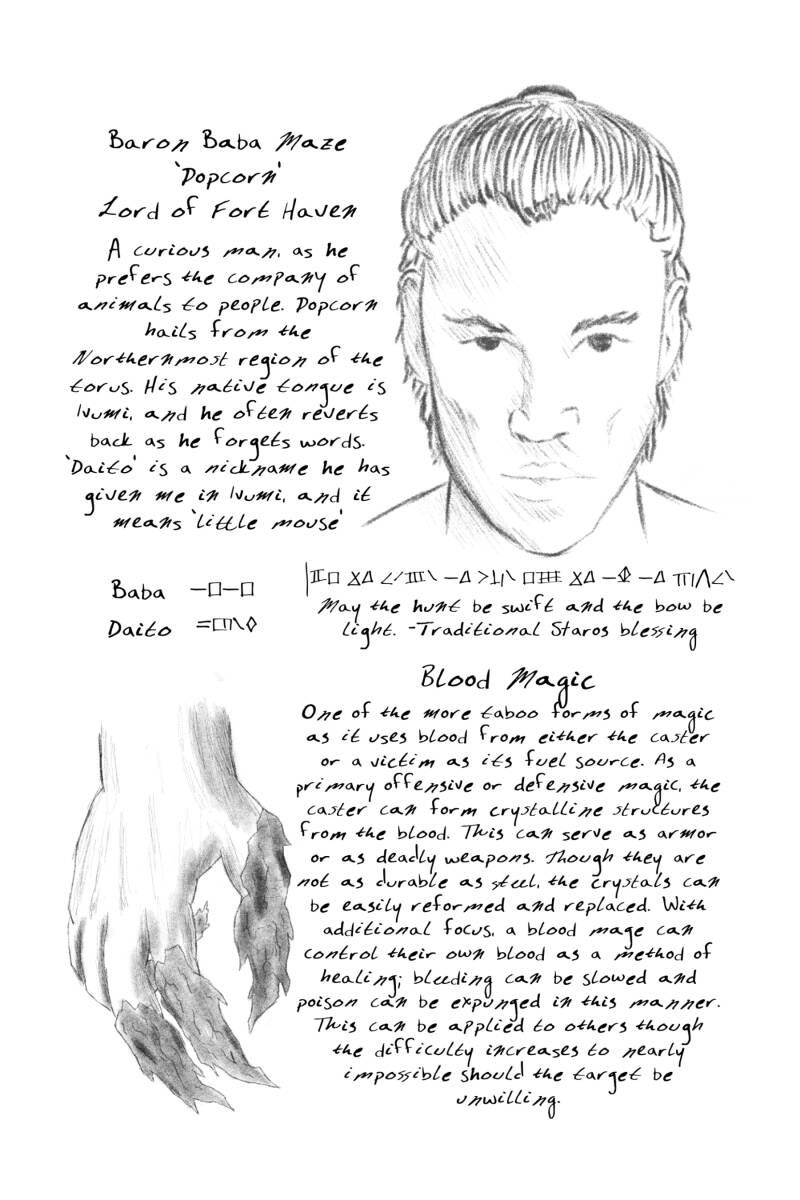 Baron Baba Maze
'Popcorn'
Lord of Fort Haven
A curious man, as he
prefers the company of
animals to people. Popcorn
hails from the
Northernmost region of the
torus. His native tongue is
Ivumi, and he often reverts
back as he forgets words.
'Daito' is a nickname he has
given me in Ivumi, and it
means 'little mouse'
Baba
Daito
May the hunt be swift and the bow be
light. -Traditional Staros blessing
Blood Magic
One of the more taboo forms of magic
as it uses blood from either the caster
or a victim as its fuel source. As a
primary offensive or defensive magic, the
caster can form crystalline structures
from the blood. This can serve as armor
or as deadly weapons. Though they are
not as durable as steel, the crystals can
be easily reformed and replaced. With
additional focus, a blood mage can
control their own blood as a method of
healing; bleeding can be slowed and
poison can be expunged in this manner.
This can be applied to others though
the difficulty increases to nearly
impossible should the target be
unwilling.